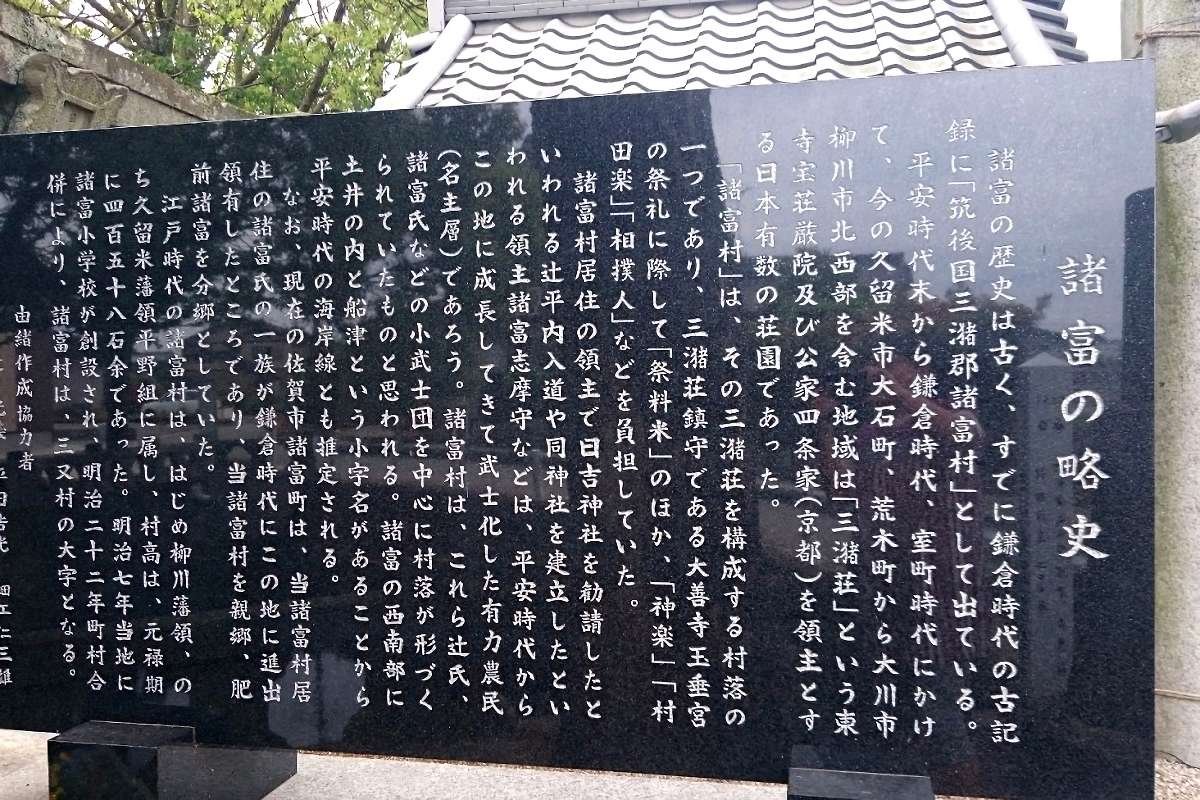 諸富の略史
諸富の歴史は古く、すでに鎌倉時代の古記
録に「筑後国三潴郡諸富村」として出ている。
平安時代末から鎌倉時代、室町時代にかけ
て、今の久留米市大石町、荒木町から大川市
柳川市北西部を含む地域は「三潴荘」という東
寺宝荘厳院及び公家四条家(京都)を領主とす
る日本有数の荘園であった。
「諸富村」は、その三潴荘を構成する村落の
一つであり、三潴荘鎮守である大善寺玉垂宮
の祭礼に際して「祭料米」のほか、「神楽」「村
田楽」「相撲人」などを負担していた。
諸富村居住の領主で日吉神社を勧請したと
いわれる辻平内入道や同神社を建立したとい
われる領主諸富志摩守などは、平安時代から
この地に成長してきて武士化した有力農民
(名主層)であろう。諸富村は、これら辻氏、
諸富氏などの小武士団を中心に村落が形づく
られていたものと思われる。諸富の西南部に
土井の内と船津という小字名があることから
平安時代の海岸線とも推定される。
なお、現在の佐賀市諸富町は、当諸富村居
住の諸富氏の一族が鎌倉時代にこの地に進出
領有したところであり、当諸富村を親郷、肥
前諸富を分郷としていた。
江戸時代の諸富村は、はじめ柳川藩領、の
ち久留米藩領平野組に属し、村高は、元禄期
に四百五十八石余であった。明治七年当地に
諸富小学校が創設され、明治二十二年町村合
併により、諸富村は、三又村の大字となる。
由緒作成協力者
平田